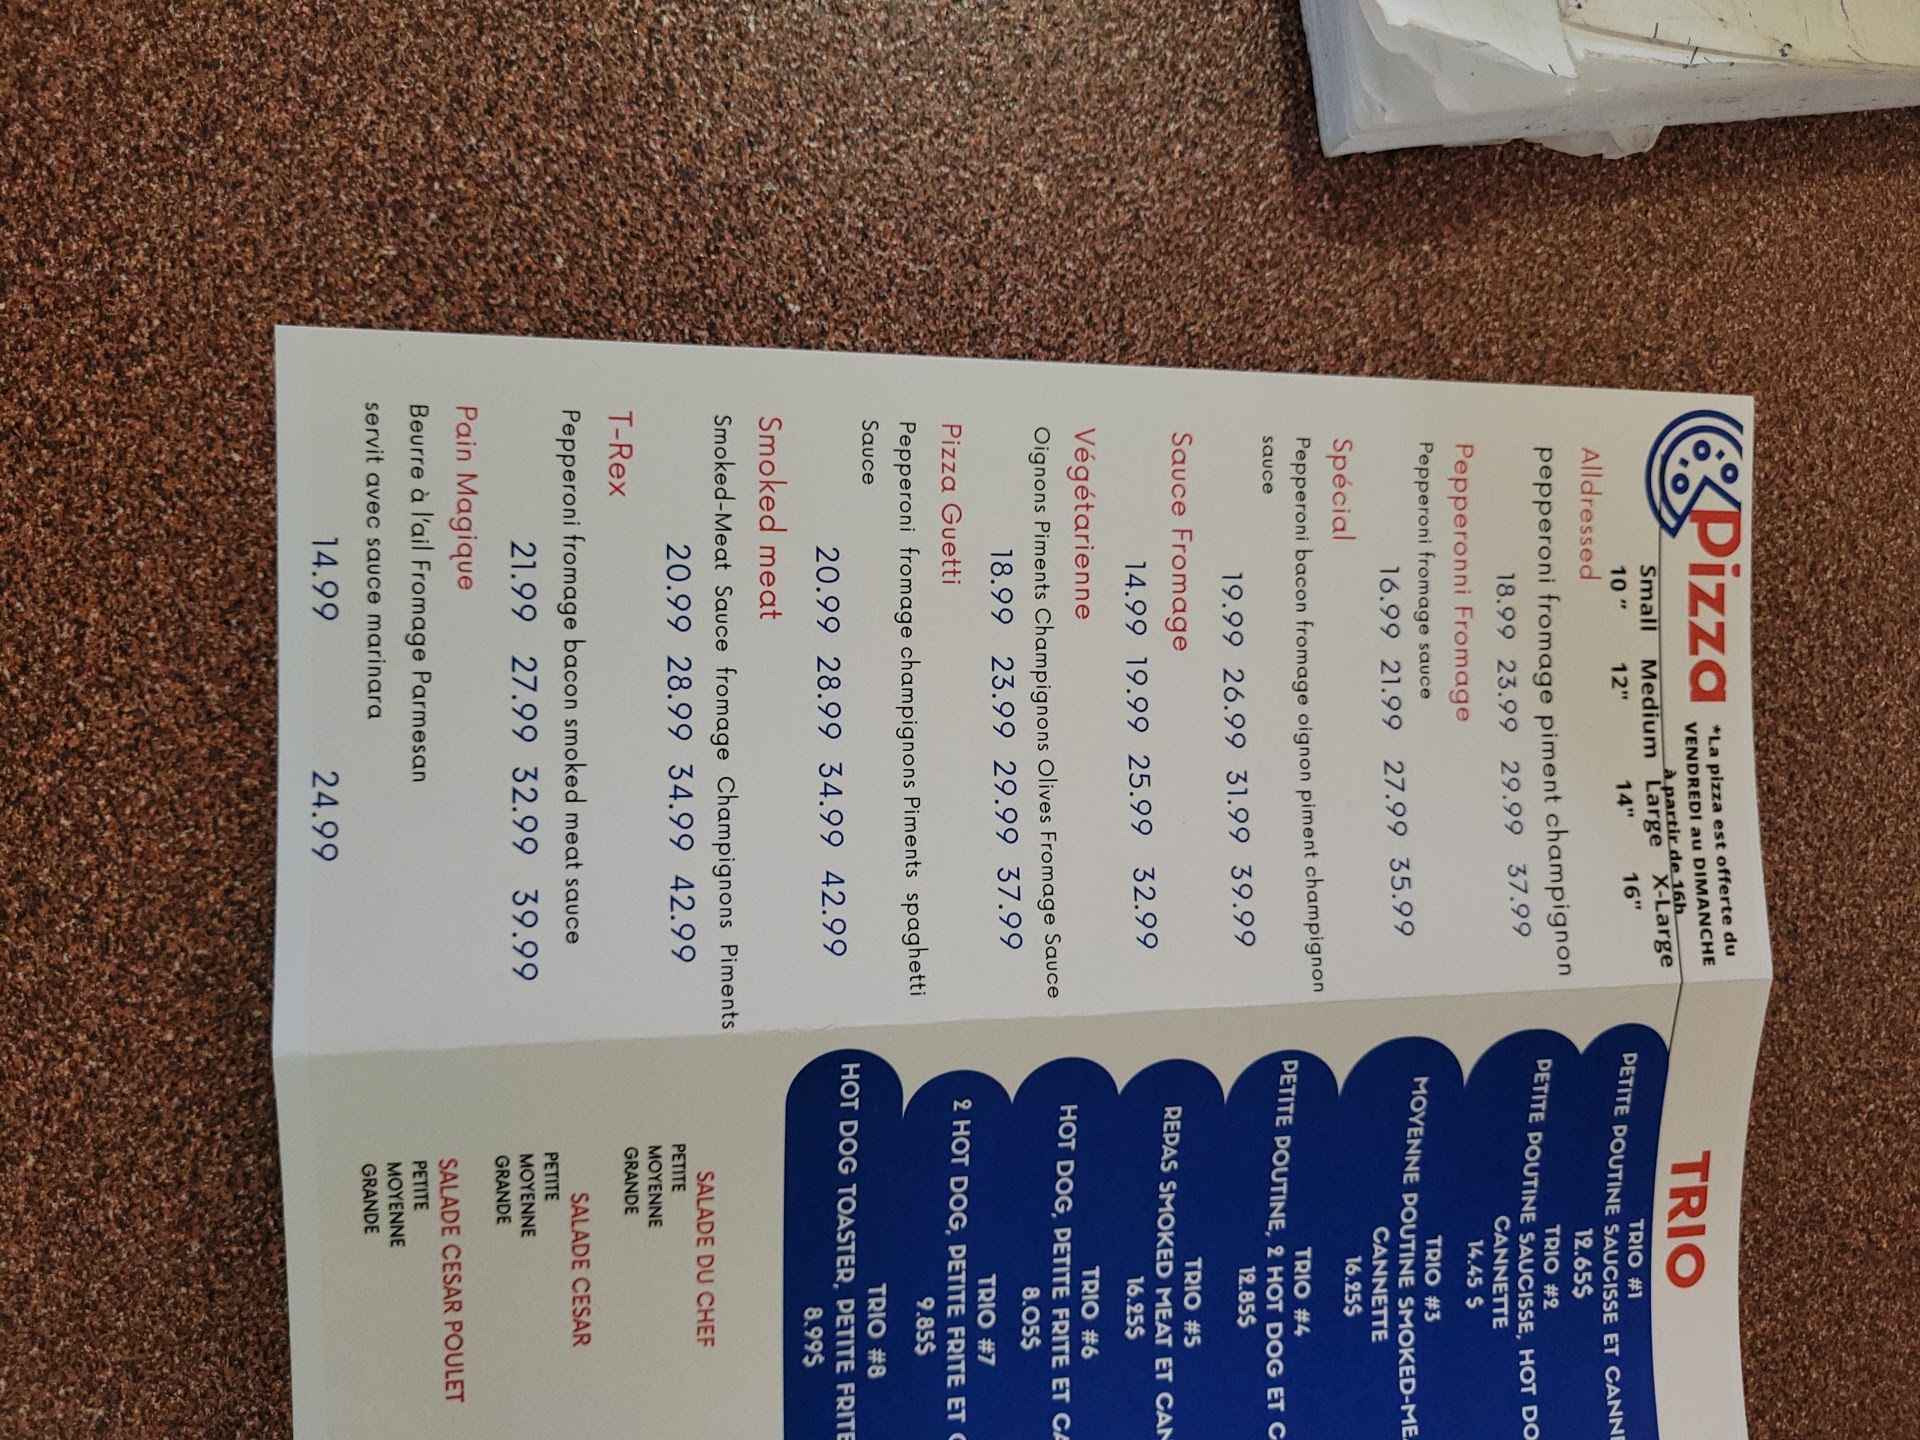 Pizza
*La pizza est offerte du
VENDREDI au DIMANCHE
à partir de 16h
Small Medium Large X-Large
10" 12" 14" 16"
Alldressed
pepperoni fromage piment champignon
18.99 23.99 29.99 37.99
Pepperonni Fromage
Pepperoni fromage sauce
16.99 21.99 27.99 35.99
Spécial
Pepperoni bacon fromage oignon piment champignon
sauce
19.99 26.99 31.99 39.99
Sauce Fromage
14.99 19.99 25.99 32.99
Végétarienne
Oignons Piments Champignons Olives Fromage Sauce
18.99 23.99 29.99 37.99
Pizza Guetti
Pepperoni fromage champignons Piments spaghetti
Sauce
20.99 28.99 34.99 42.99
Smoked meat
Smoked-Meat Sauce fromage Champignons Piments
20.99 28.99 34.99 42.99
T-Rex
Pepperoni fromage bacon smoked meat sauce
21.99 27.99 32.99 39.99
Pain Magique
Beurre à l'ail Fromage Parmesan
servit avec sauce marinara
14.99 24.99
TRIO
TRIO #1
PETITE POUTINE SAUCISSE ET CANN
12.65$
TRIO #2
PETITE POUTINE SAUCISSE, HOT DO
CANNETTE
14.45 $
TRIO #3
MOYENNE POUTINE SMOKED-ME
CANNETTE
16.25$
TRIO #4
PETITE POUTINE, 2 HOT DOG ET C
12.85$
TRIO #5
REPAS SMOKED MEAT ET CAN
16.25$
TRIO #6
HOT DOG, PETITE FRITE ET CA
8.05$
TRIO #7
2 HOT DOG, PETITE FRITE ET C
9.85$
TRIO #8
HOT DOG TOASTER, PETITE FRITE
8.99$
SALADE DU CHEF
PETITE
MOYENNE
GRANDE
SALADE CESAR
PETITE
MOYENNE
GRANDE
SALADE CESAR POULET
PETITE
MOYENNE
GRANDE